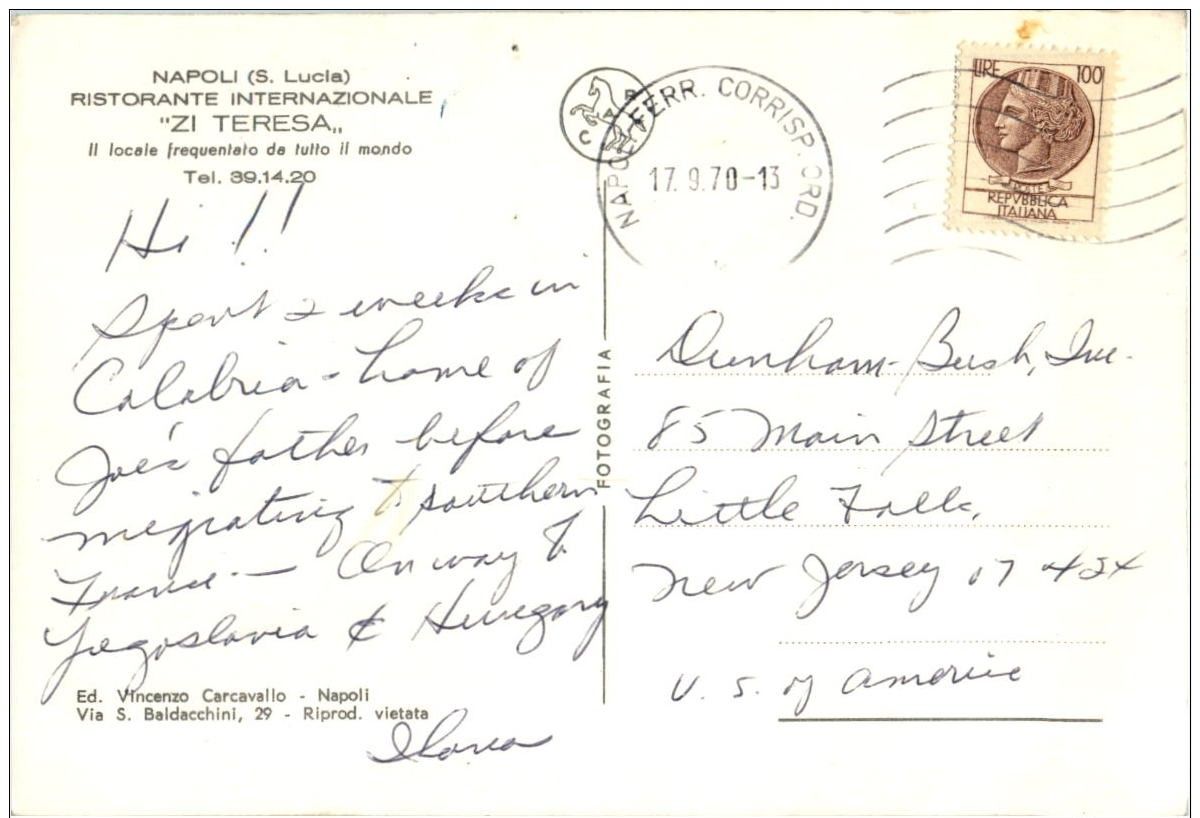 NAPOLI (S. Lucia)
RISTORANTE INTERNAZIONALE
"ZI TERESA„
Il locale frequentato da tutto il mondo
Tel. 39.14.20
Hi !!
Spent 2 weeks in
Calabria - home of
Joe's father before
migrating to southern
France — On way to
Yugoslavia & Hungary
Ed. Vincenzo Carcavallo - Napoli
Via S. Baldacchini, 29 - Riprod. vietata
FOTOGRAFIA
CAR
NAPOLI FERR. CORRISP. ORD.
17.9.70-13
LIRE 100
REPVBBLICA
ITALIANA
Dunham-Bush, Inc.
85 Main Street
Little Falls,
New Jersey 07424
U. S. of America